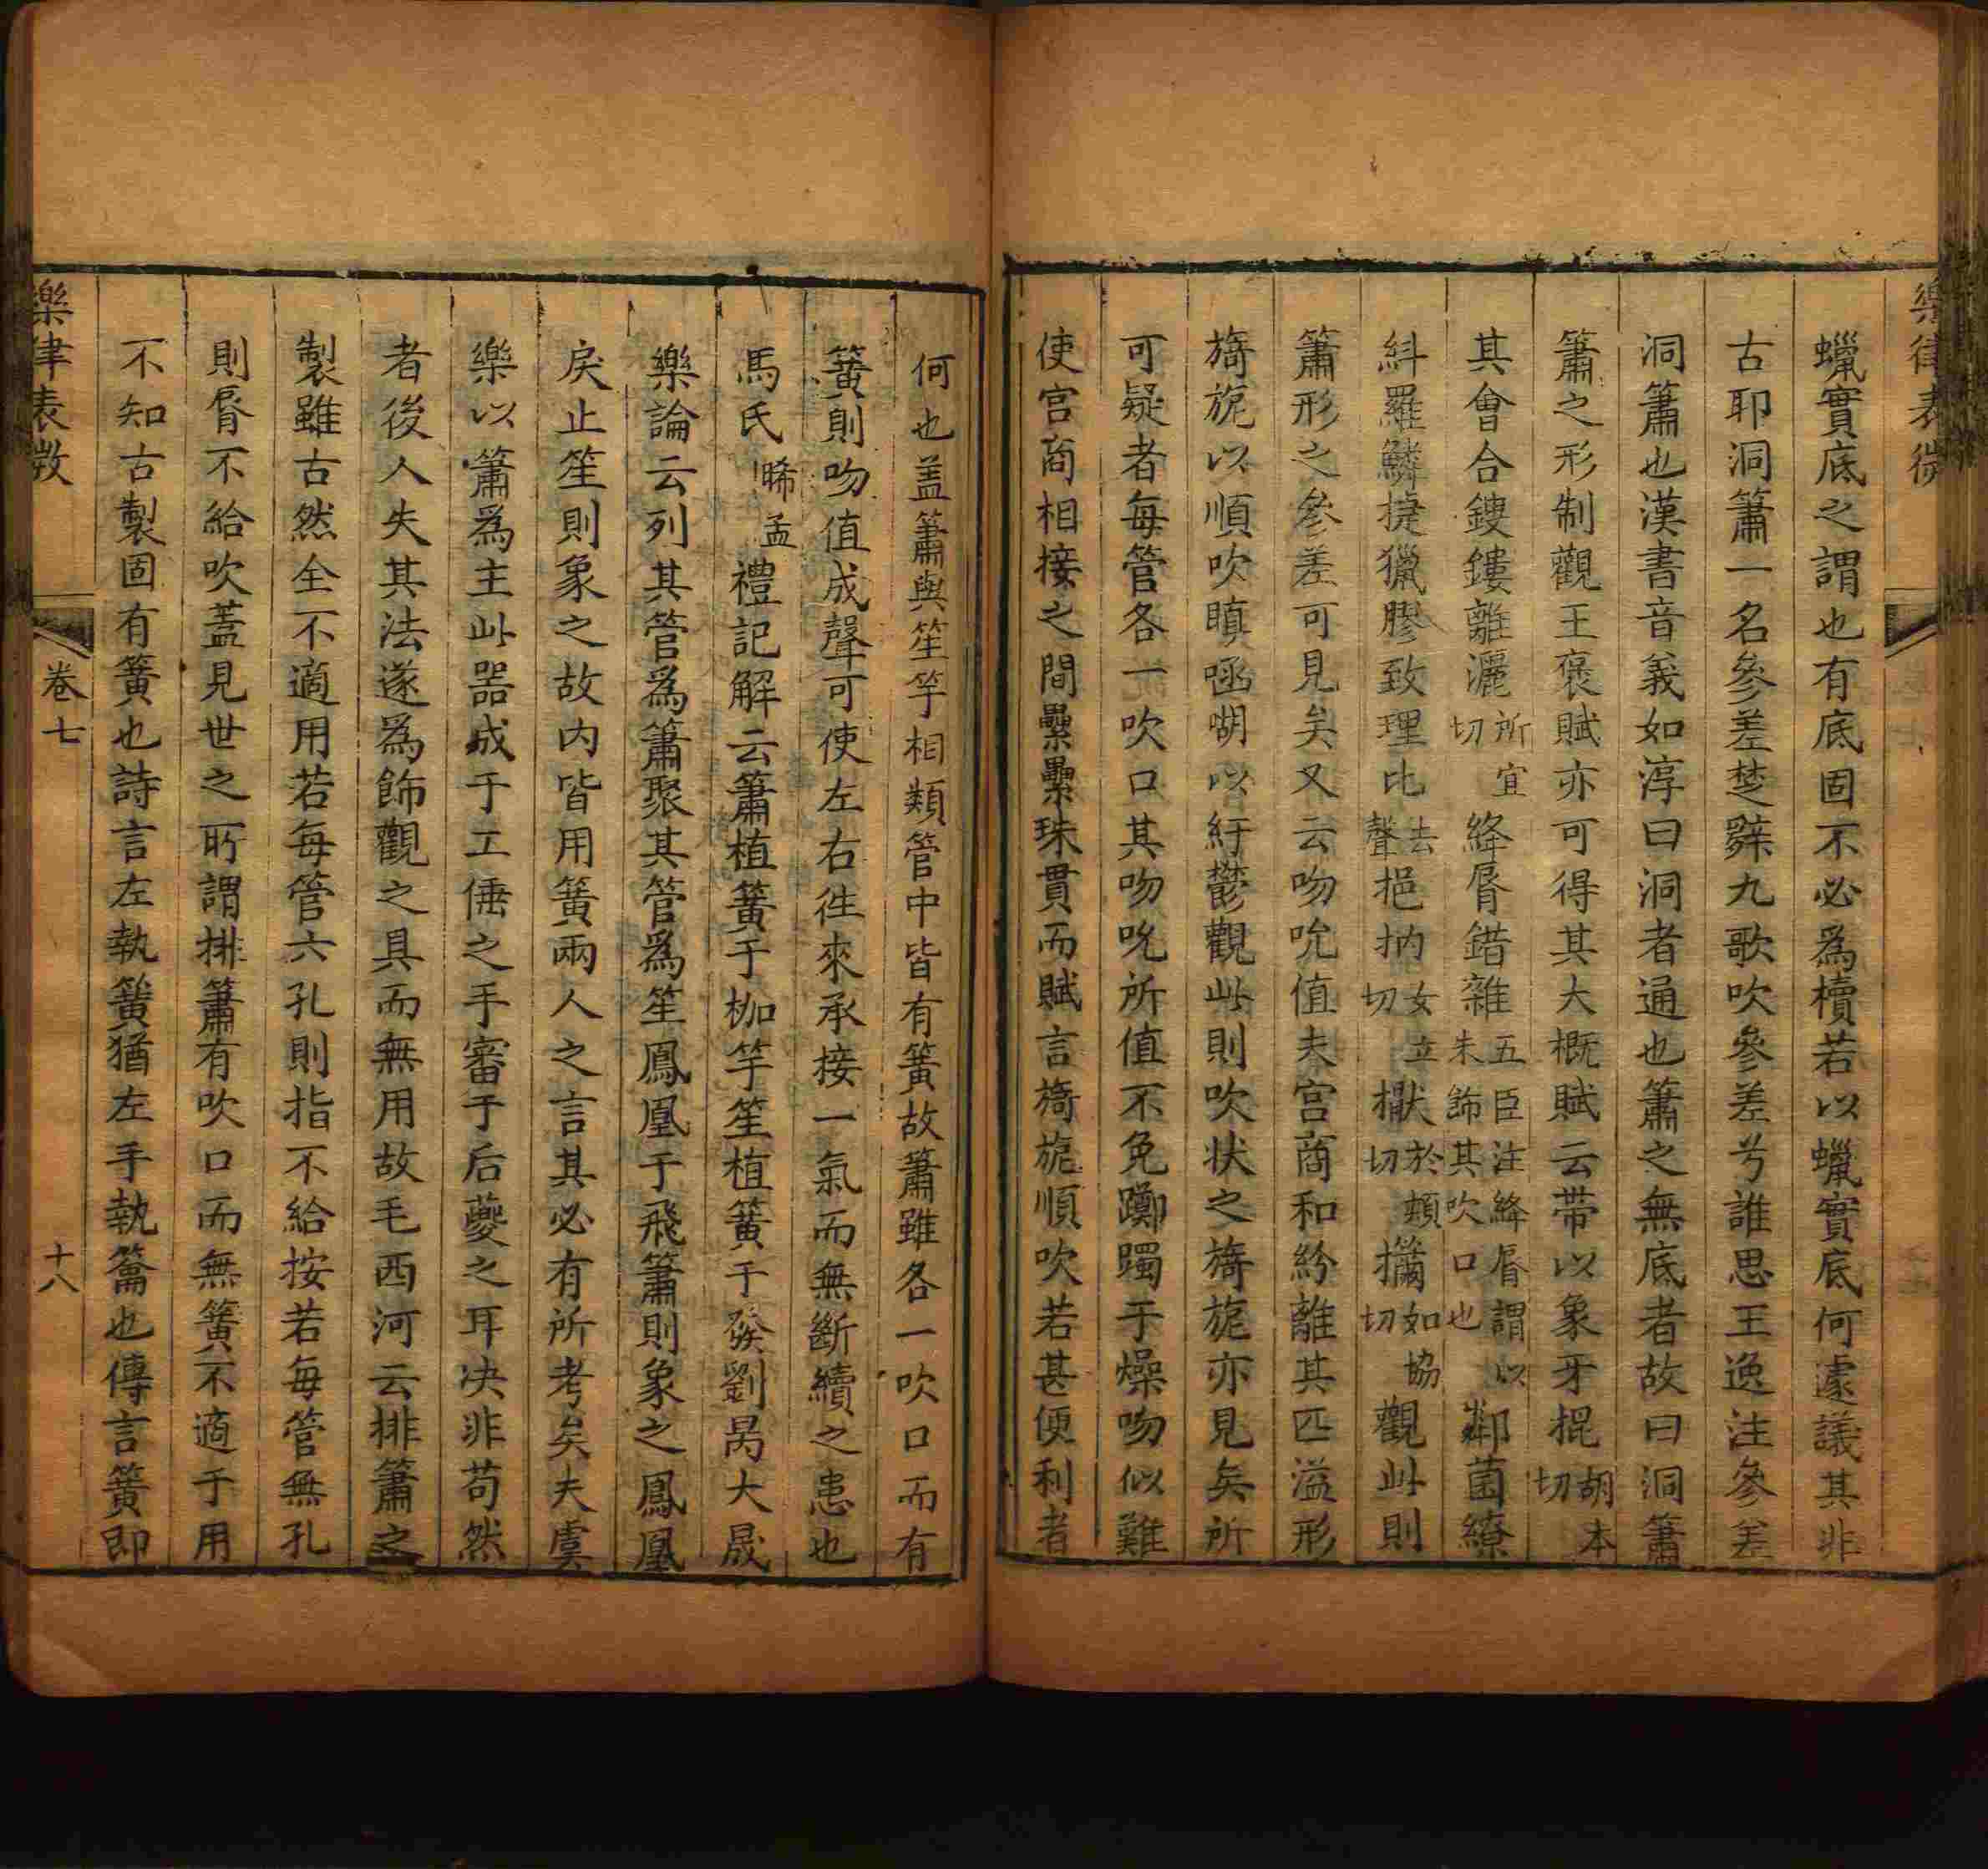 樂律表微
蠟實底之謂也有底固不必爲櫝若以蠟實底何遽議其非
古耶洞簫一名參差楚辭九歌吹參差兮誰思王逸注參差
洞簫也漢書音義如淳曰洞者通也簫之無底者故曰洞簫
簫之形制觀王褒賦亦可得其大概賦云帶以象牙掍胡本切
其會合鎪鏤離灑所宜切絳脣錯雜五臣注絳脣謂以朱飾其吹口也鄰菌繚
糾羅鱗捷獵膠致理比去聲挹抐女立切擫於頰切㩎如協切觀此則
簫形之參差可見矣又云吻吮值夫宮商和紛離其匹溢形
旖旎以順吹瞋㖤㗅以紆鬱觀此則吹狀之旖旎亦見矣所
可疑者每管各一吹口其吻吮所值不免躑躅于燥吻似難
使宮商相接之間纍纍珠貫而賦言旖旎順吹若甚便利者
何也盖簫與笙竽相類管中皆有簧故簫雖各一吹口而有
簧則吻值成聲可使左右徃來承接一氣而無斷續之患也
馬氏晞孟禮記解云簫植簧于枷竽笙植簧于匏劉昺大晟
樂論云列其管爲簫聚其管爲笙鳳凰于飛簫則象之鳳凰
戾止笙則象之故内皆用簧兩人之言其必有所考矣夫虞
樂以簫爲主此噐成于工倕之手審于后夔之耳决非苟然
者後人失其法遂爲飾觀之具而無用故毛西河云排簫之
製雖古然全不適用若每管六孔則指不給按若每管無孔
則脣不給吹蓋見世之所謂排簫有吹口而無簧不適于用
不知古製固有簧也詩言左執簧猶左手執籥也傳言簧即
樂律表微
卷七
十八